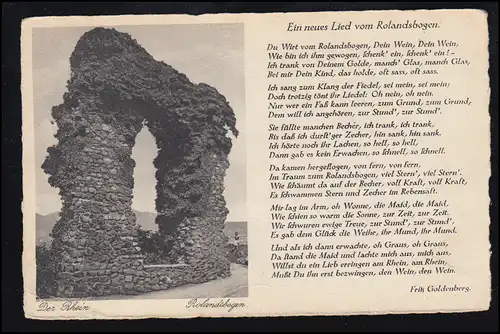 Ein neues Lied vom Rolandsbogen.
Du Wirt vom Rolandsbogen, Dein Wein, Dein Wein,
Wie bin ich ihm gewogen, schenk' ein, schenk' ein! -
Ich trank von Deinem Golde, manch' Glas, manch Glas,
Bei mir Dein Kind, das holde, oft sass, oft sass.
Ich sang zum Klang der Fiedel, sei mein, sei mein;
Doch trotzig tönt ihr Liedel: Oh nein, oh nein.
Nur wer ein Faß kann leeren, zum Grund, zum Grund,
Dem will ich angehören, zur Stund', zur Stund'.
Sie füllte manchen Becher, ich trank, ich trank,
Bis daß ich durst'ger Zecher, hin sank, hin sank.
Ich hörte noch ihr Lachen, so hell, so hell,
Dann gab es kein Erwachen, so schnell, so schnell.
Da kamen hergeflogen, von fern, von fern,
Im Traum zum Rolandsbogen, viel Stern', viel Stern'.
Wie schäumt da auf der Becher, voll Kraft, voll Kraft,
Es schwammen Stern und Zecher im Rebensaft.
Mir lag im Arm, oh Wonne, die Maid, die Maid,
Wie schien so warm die Sonne, zur Zeit, zur Zeit.
Wir schwuren ewige Treue, zur Stund', zur Stund',
Es gab dem Glück die Weihe, ihr Mund, ihr Mund.
Und als ich dann erwachte, oh Graus, oh Graus,
Da stand die Maid und lachte mich aus, mich aus,
Willst du ein Lieb erringen am Rhein, am Rhein,
Mußt Du ihn erst bezwingen, den Wein, den Wein.
Fritz Goldenberg.
Der Rhein
Rolandsbogen